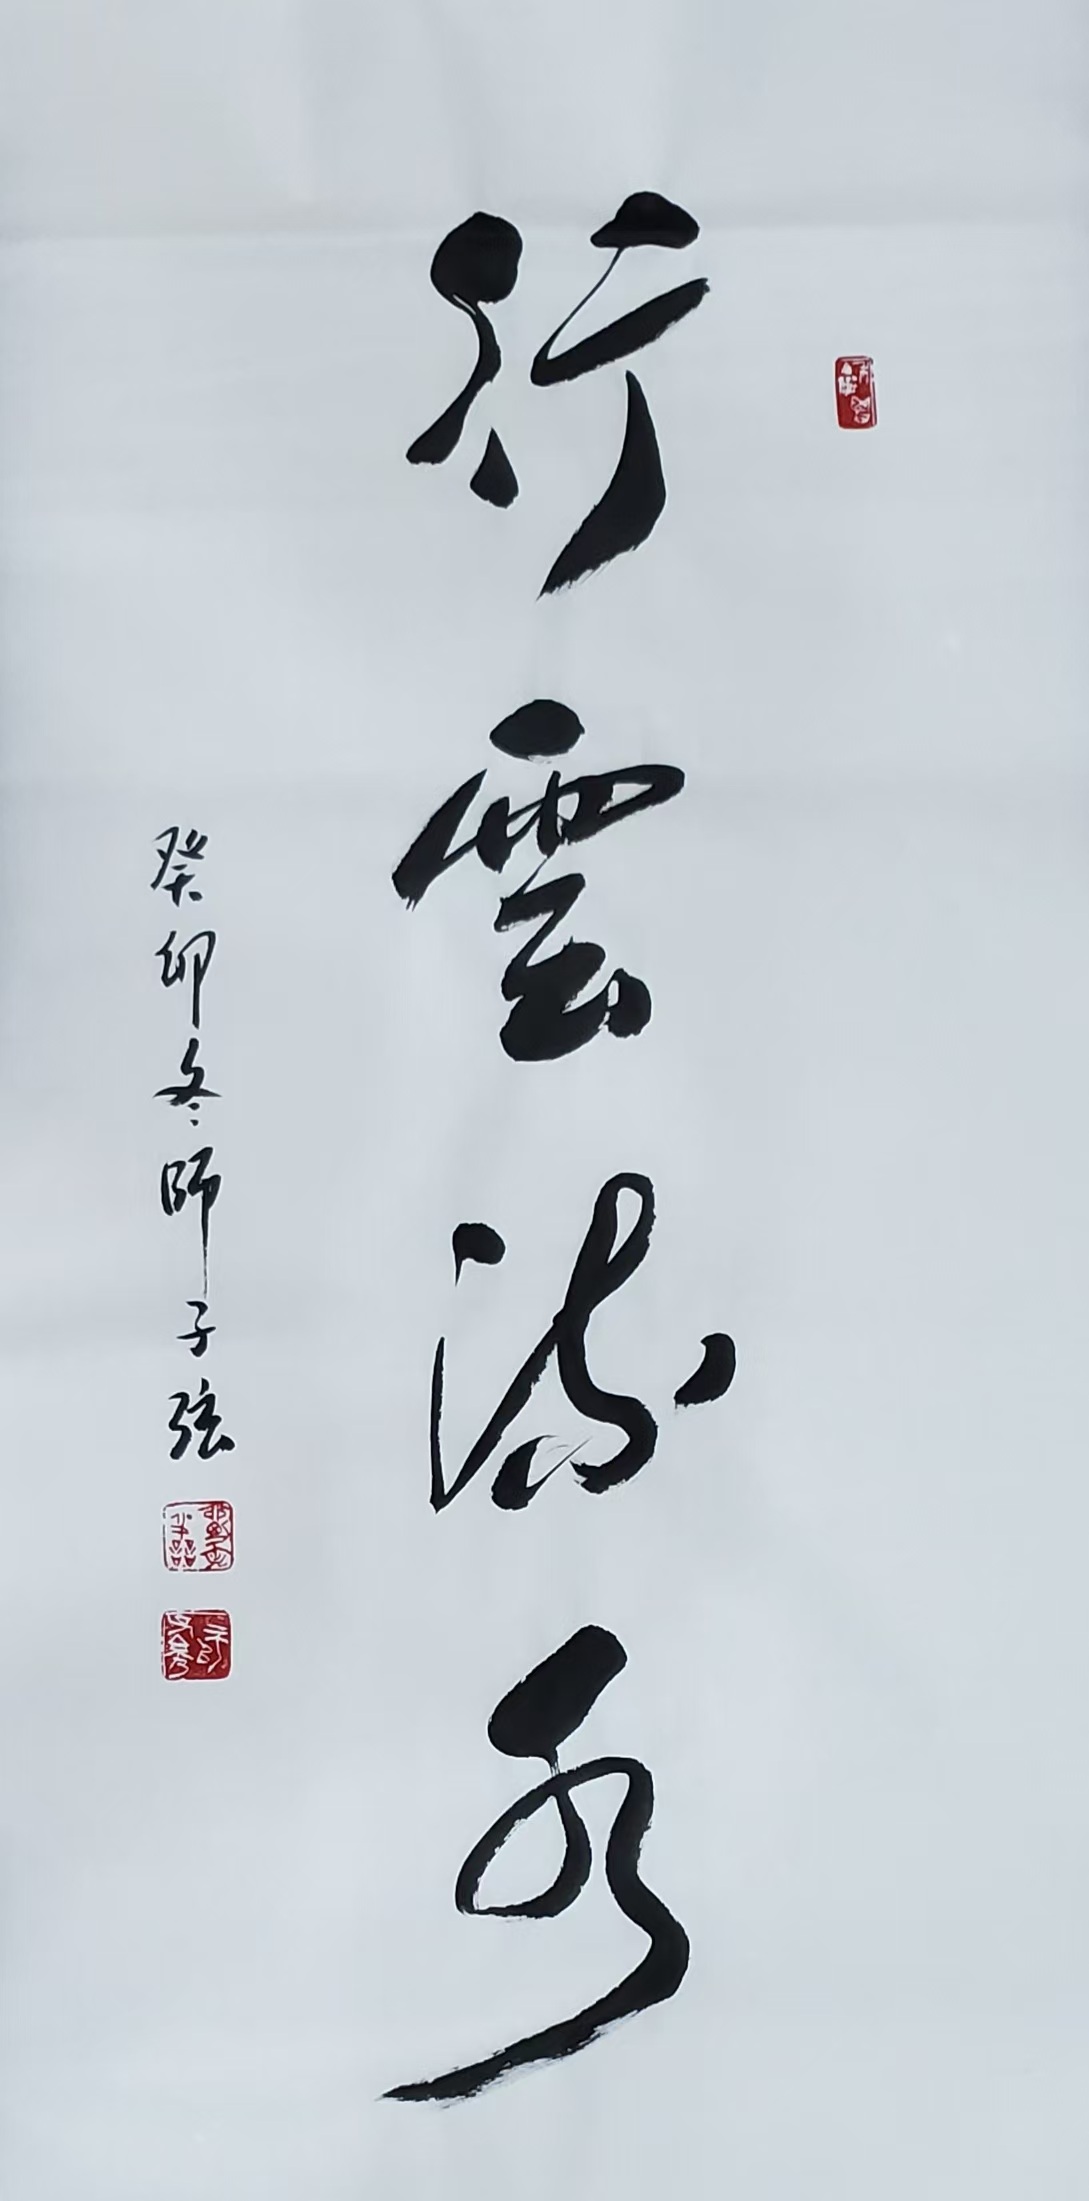 行雲流水
癸卯冬師子弦